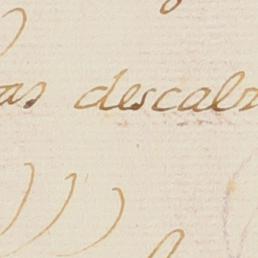 as descalz